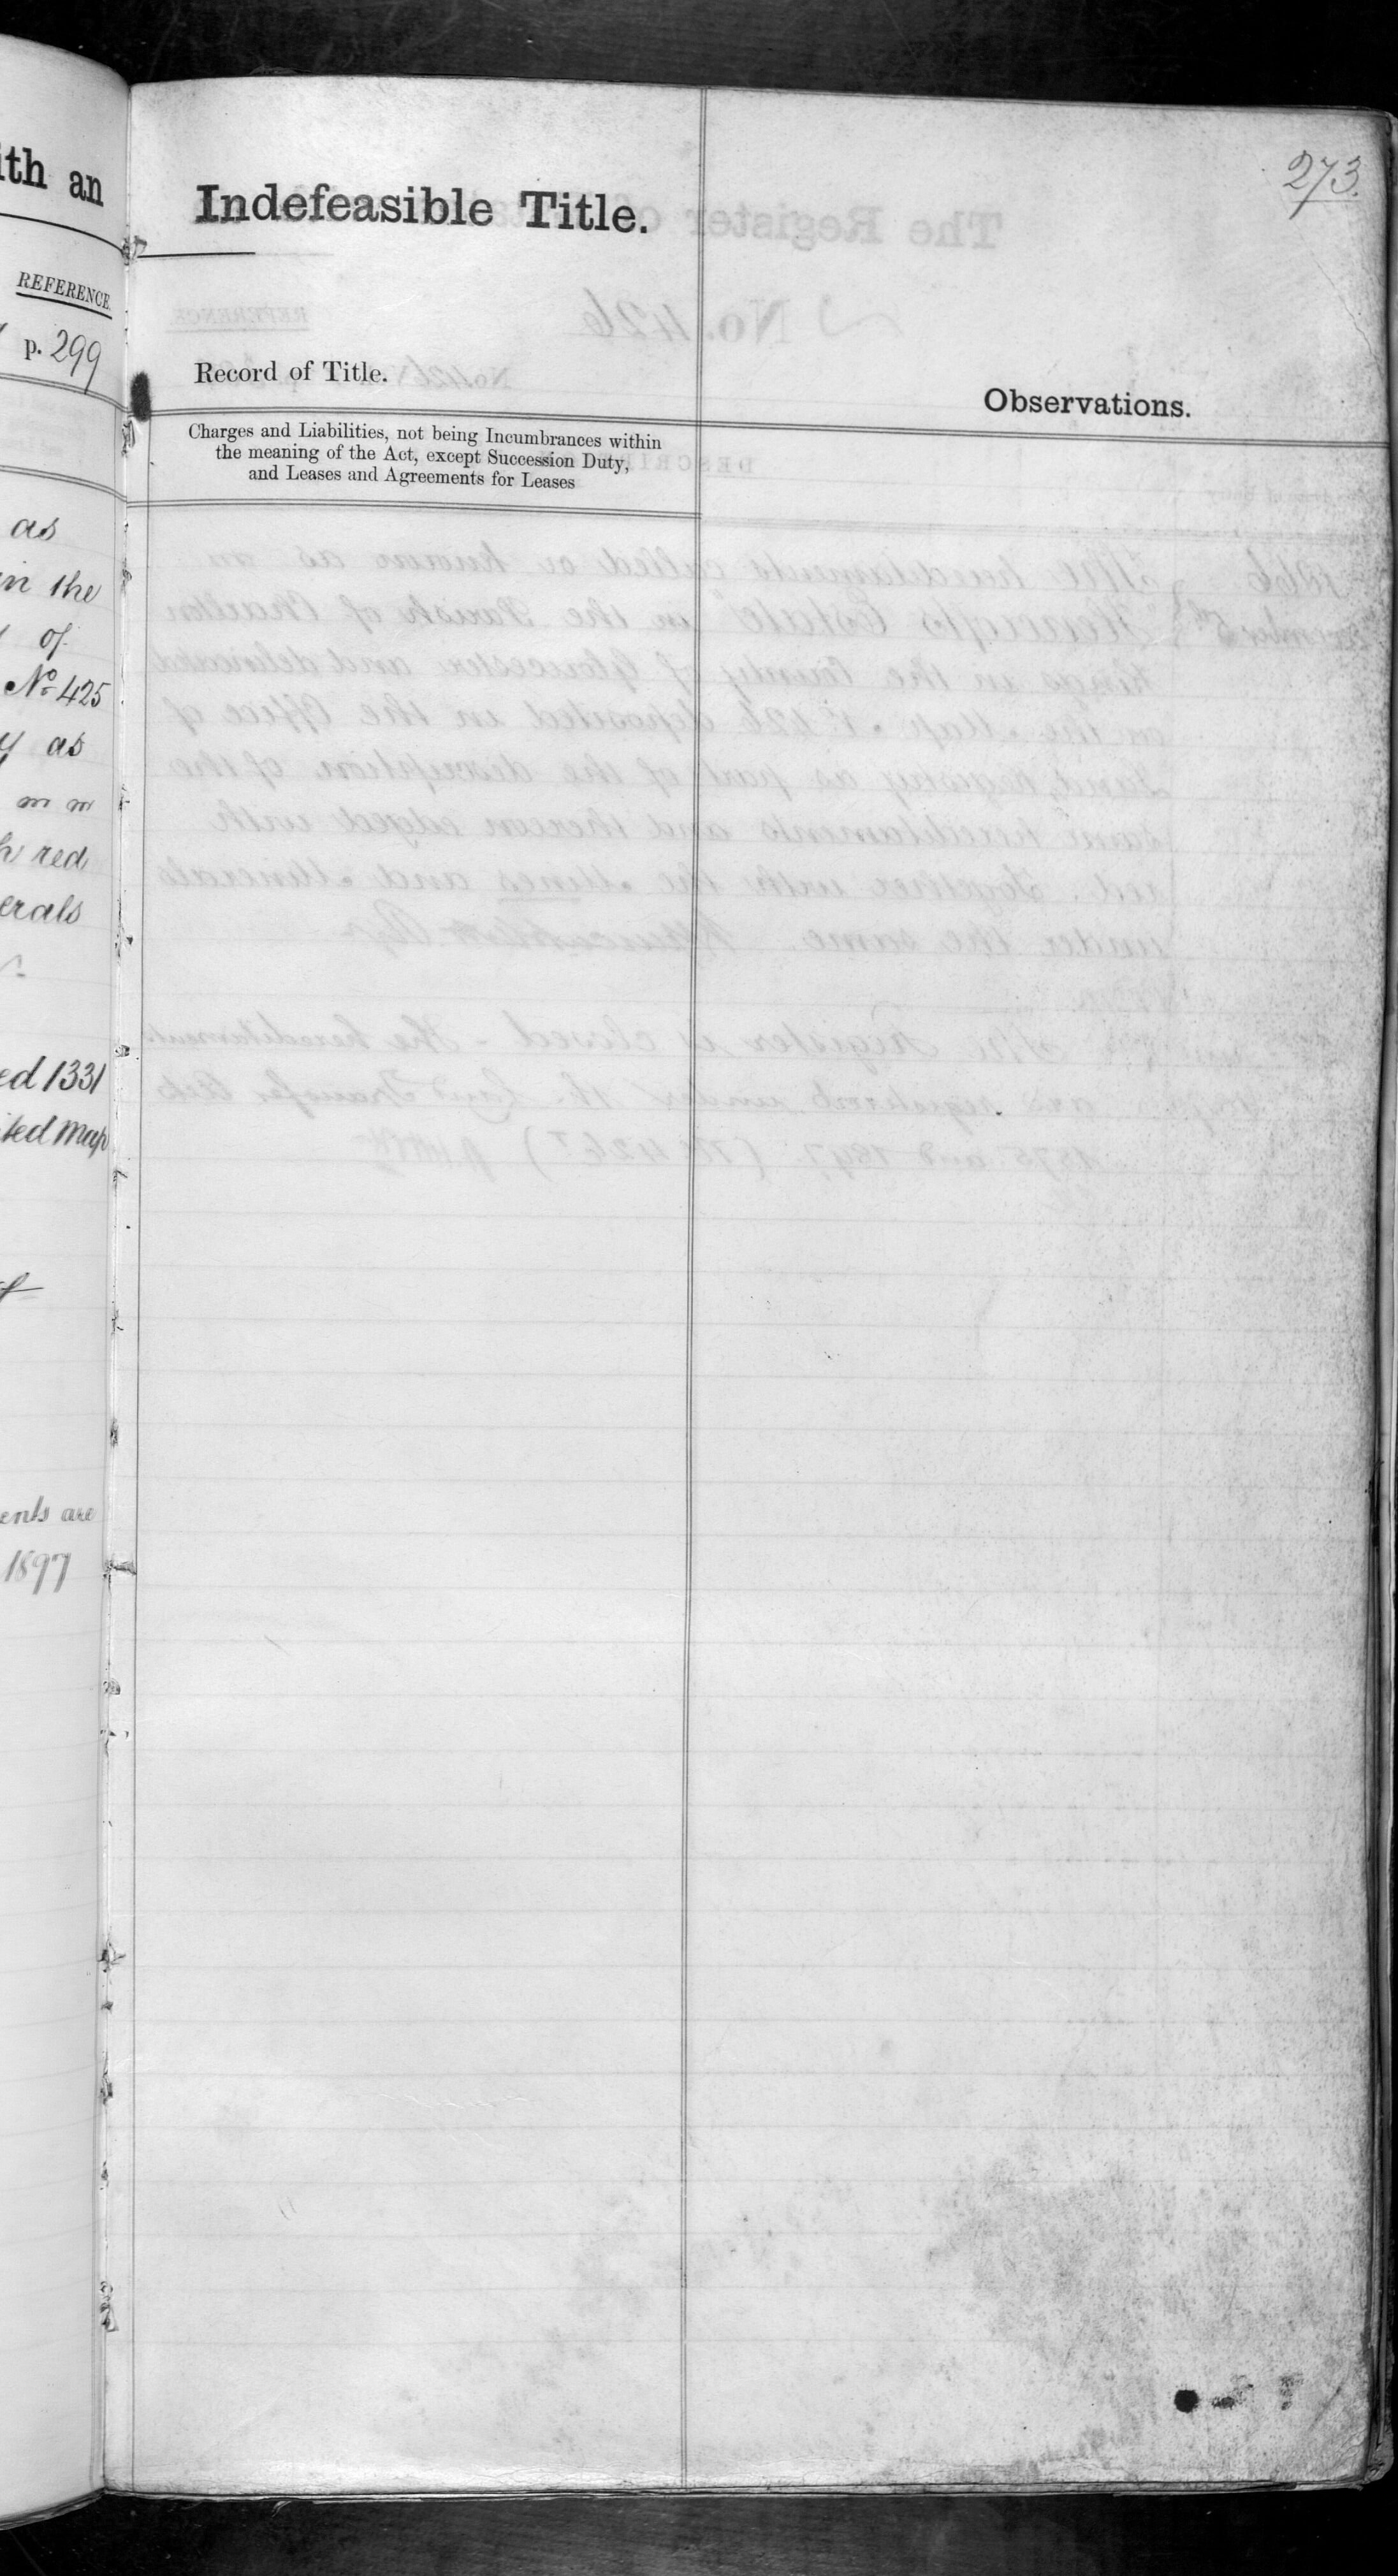 ith an
REFERENCE.
p. 299
as
in the
of
No 425
y as
h red
erals
ed 1331
ted Map
ents are
1897
273.
Indefeasible Title.
Record of Title.
Observations.
Charges and Liabilities, not being Incumbrances within
the meaning of the Act, except Succession Duty,
and Leases and Agreements for Leases